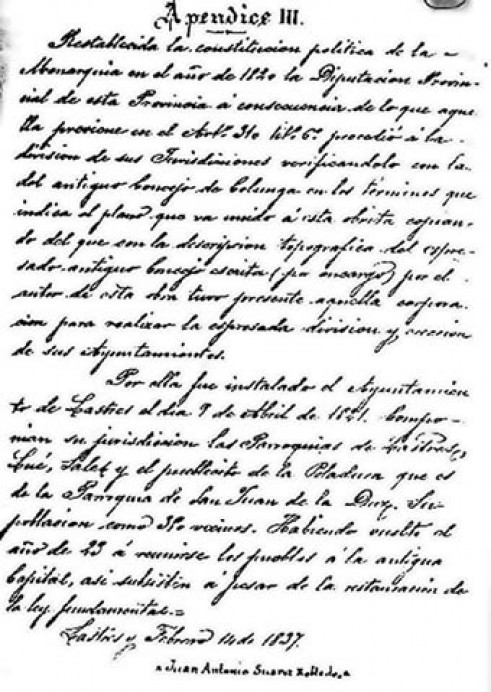 Apendice III.
Restablecida la constitucion politica de la
Monarquia en el año de 1820 la Diputacion Provin-
cial de esta Provincia á consecuencia de lo que aque-
lla previene en el Artº 310 titº 6º procedió á la
division de sus Jurisdiciones verificandolo con la
del antiguo Concejo de Colunga en los términos que
indica el plano que va unido á esta obrita copian-
do del que con la descripcion topografica del espre-
sado antiguo Concejo escrita (por encargo) por el
autor de esta obra tuvo presente aquella corpora-
cion para realizar la espresada division y ereccion
de sus Ayuntamientos.
Por ella fue instalado el Ayuntamien-
to de Lastres el dia 9 de Abril de 1821. Compo-
nian su jurisdiccion las Parroquias de Lastres,
Lué, Sales y el pueblecito de la que es
de la Parroquia de San Juan de la Duz. Su
poblasion como vecinos. Habiendo vuelto el
año de 23 á reunirse los pueblos á la antigua
Capital, asi subsisten a pesar de la restauracion de
la ley fundamental.=
Lastres y Febrero 14 de 1837.
"Juan Antonio Suarez Robledo."